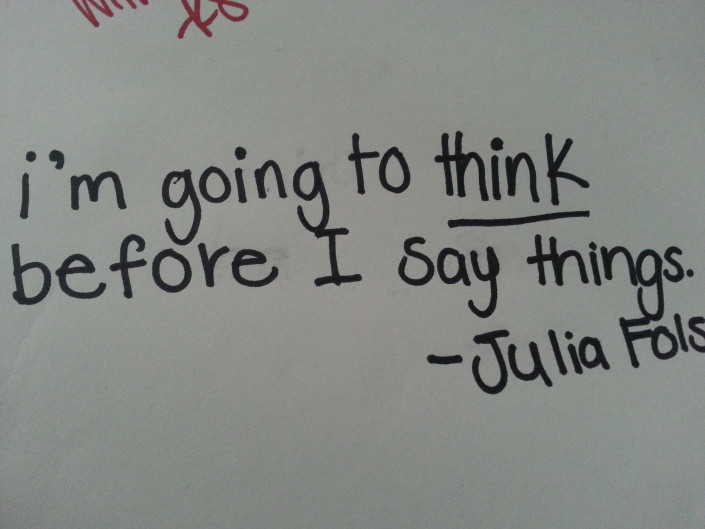 i'm going to think
before I say things.
-Julia Fols